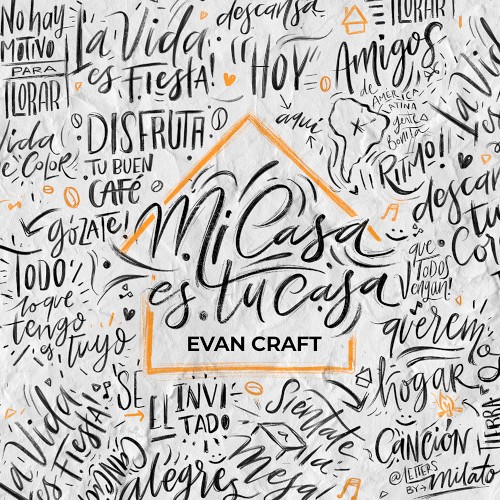 No hay
MOTIVO
PARA
LLORAR
La Vida
es FIESTA!
descansa
"HOY
LLORAR
Amigos
de
AMERICA
LATINA
gente
Bonita
aquí
La Vida
es
Vida
de Color
DISFRUTA
TU BUEN
CAFÉ
¡¡RITMO!!
descansa
tu
Cor
GÓZATE!
Mi Casa
es tu casa
EVAN CRAFT
TODO
lo que
tengo
es tuyo
que
TODOS
Vengan!
querem
hogar
SE
EL INVI
TADO
La Vida
es FIESTA!
Siéntate
a la
Mesa
alegres
CANCIÓN
LLORAR
@LETTERS
BY Milato